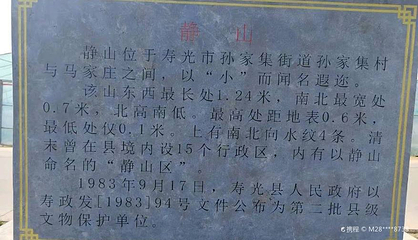 静 山
静山位于寿光市孙家集街道孙家集村
与马家庄之间，以“小”而闻名遐迩。
该山东西最长处1.24米，南北最宽处
0.7米，北高南低。最高处距地表0.6米，
最低处仅0.1米。上有南北向水纹4条。清
末曾在县境内设15个行政区，内有以静山
命名的“静山区”。
1983年9月17日，寿光县人民政府以
寿政发[1983]94号文件公布为第二批县级
文物保护单位。
携程